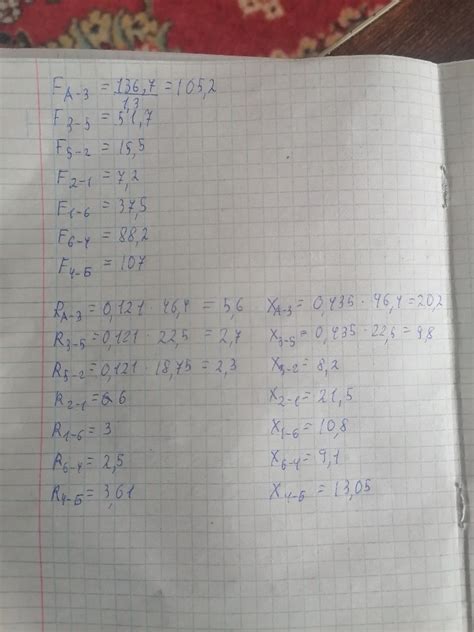 F_A-3 = 136,7/1,3 = 105,2
F_3-5 = 51,7
F_5-2 = 15,5
F_2-1 = 7,2
F_1-6 = 37,5
F_6-4 = 88,2
F_4-Б = 107
R_A-3 = 0,121 · 46,4 = 5,6
R_3-5 = 0,121 · 22,5 = 2,7
R_5-2 = 0,121 · 18,75 = 2,3
R_2-1 = 6
R_1-6 = 3
R_6-4 = 2,5
R_4-Б = 3,61
X_A-3 = 0,435 · 46,4 = 20,2
X_3-5 = 0,435 · 22,5 = 9,8
X_5-2 = 8,2
X_2-1 = 21,5
X_1-6 = 10,8
X_6-4 = 9,1
X_4-Б = 13,05